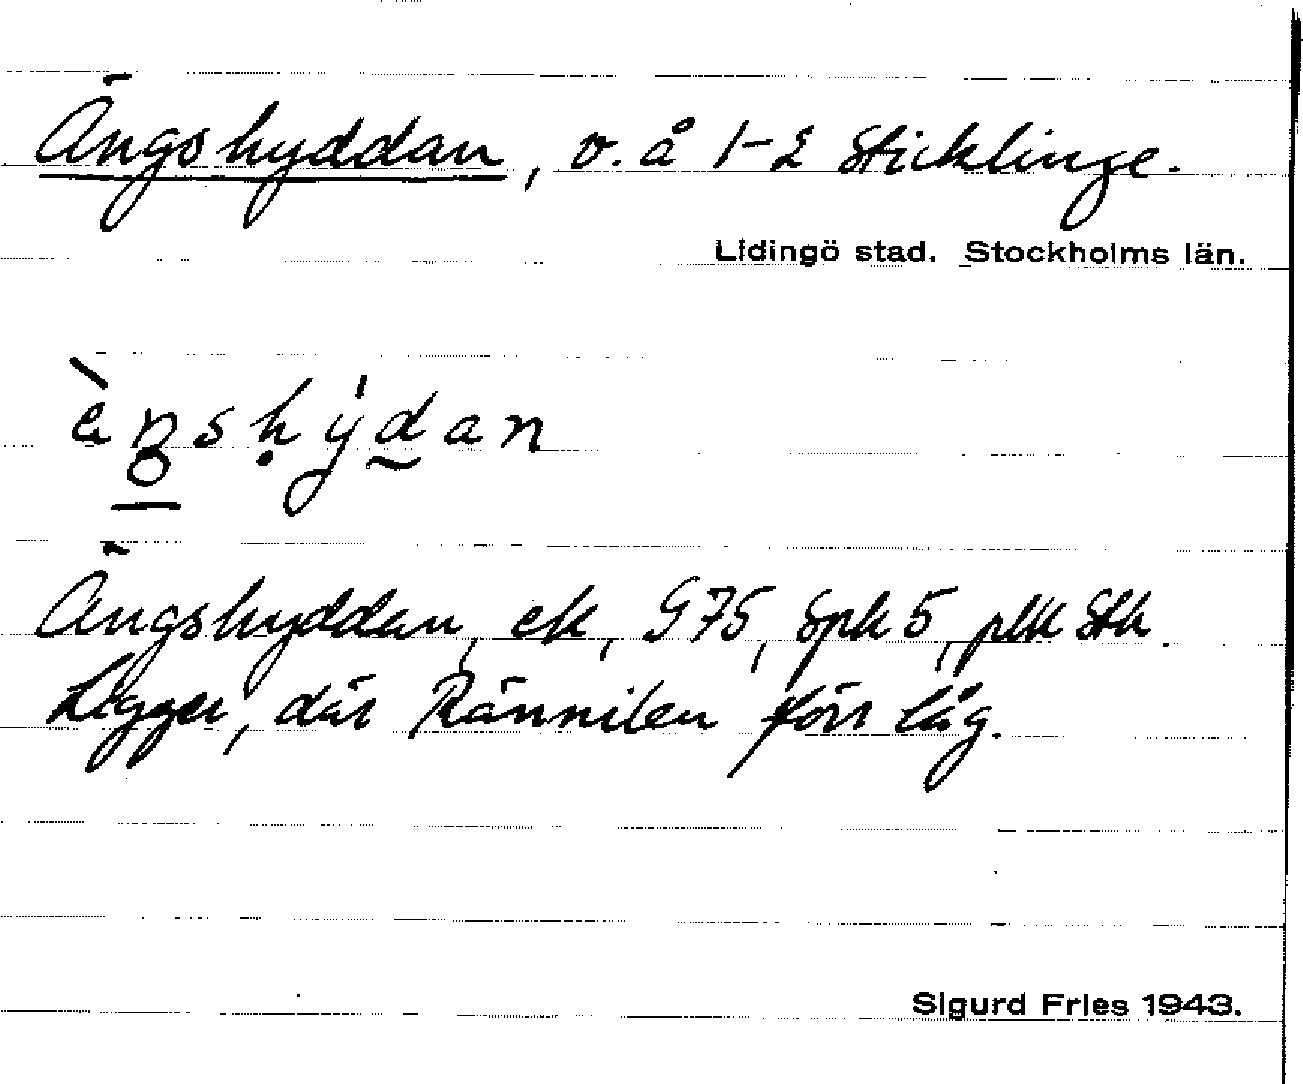 Ängshyddan, v. å 1-2 Sticklinge.
Lidingö stad. Stockholms län.
èŋshýdan
Ängshyddan, ek, G75, Spk 5, plk Stk.
Ligger, där Rännilen förr låg.
Sigurd Fries 1943.